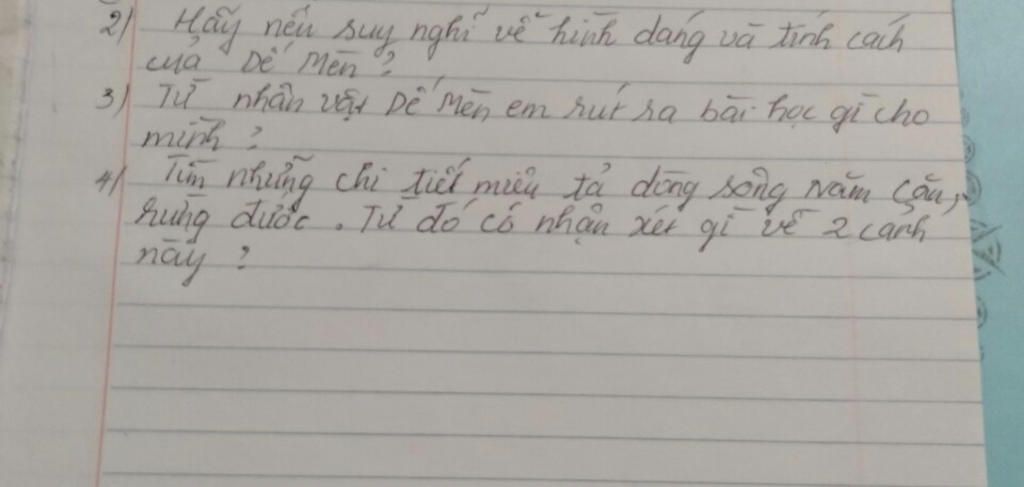 2) Hãy nêu suy nghĩ về hình dáng và tính cách
của Dế Mèn ?
3) Từ nhân vật Dế Mèn em rút ra bài học gì cho
mình ?
4) Tìm những chi tiết miêu tả dòng sông Năm Căn,
rừng đước . Từ đó có nhận xét gì về 2 cảnh
này ?